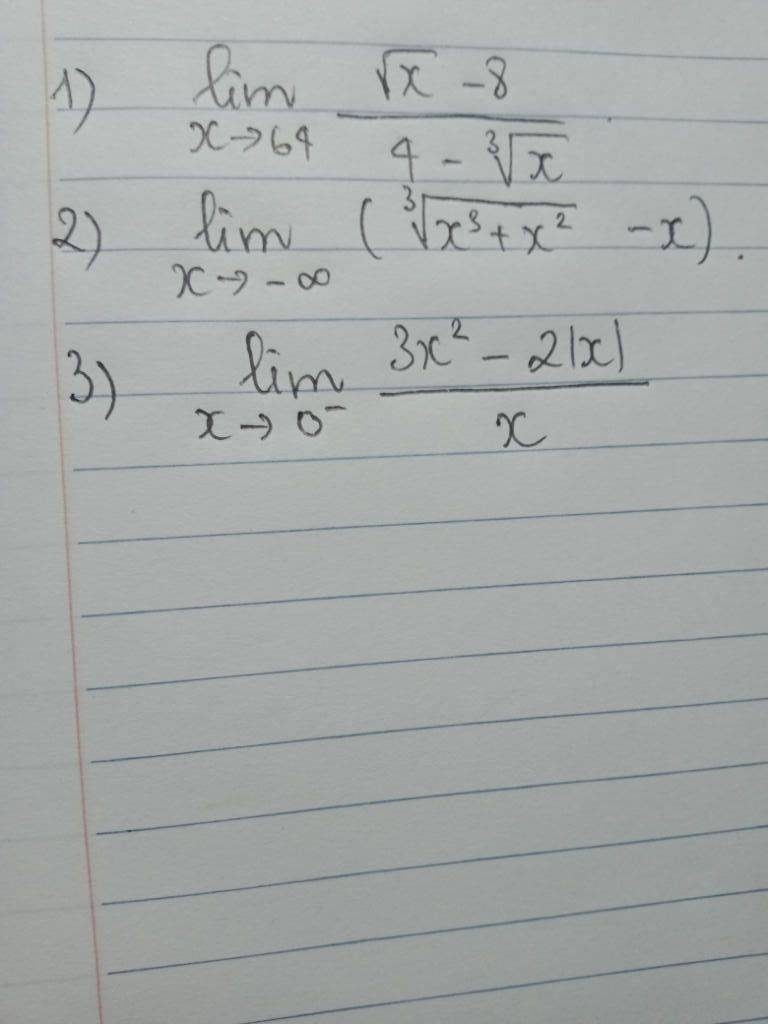 1) lim x→64 (√x − 8) / (4 − ∛x)
2) lim x→−∞ (∛(x³ + x²) − x).
3) lim x→0⁻ (3x² − 2|x|) / x